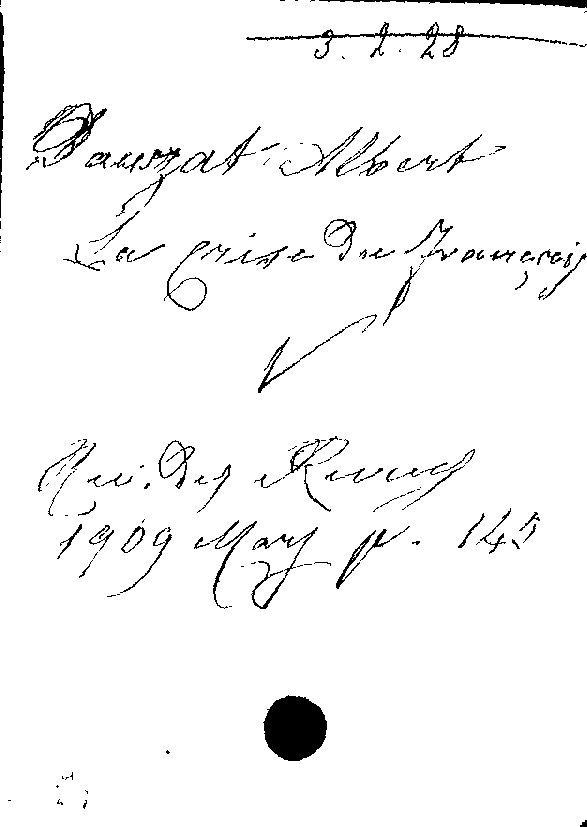 3. 2. 28
Dauzat Albert
La crise du français
Rev. des Revues
1909 Mars p. 145